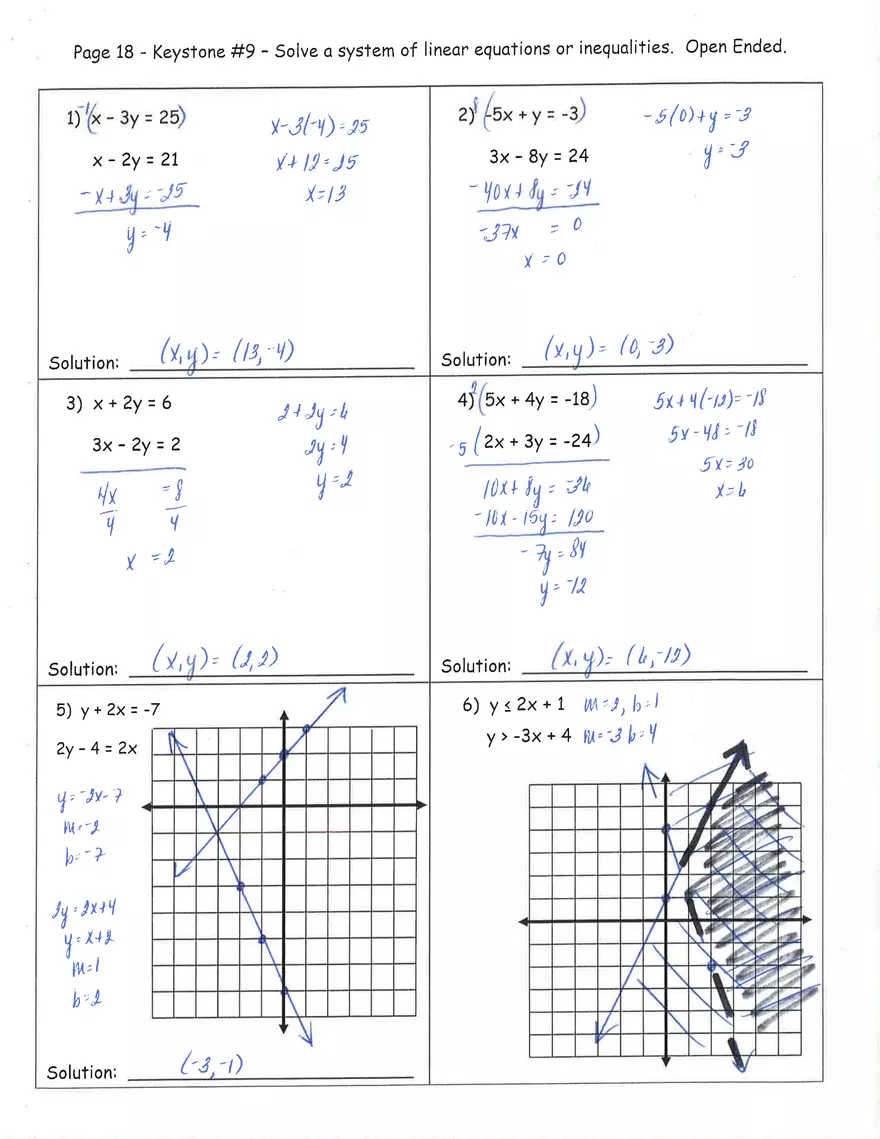 Page 18 - Keystone #9 – Solve a system of linear equations or inequalities. Open Ended.
1) -1(x – 3y = 25)
x – 2y = 21
-x + 3y = -25
y = -4
x - 3(-4) = 25
x + 12 = 25
x = 13
Solution: (x,y) = (13, -4)
2) 8(-5x + y = -3)
3x – 8y = 24
-40x + 8y = -24
-37x = 0
x = 0
-5(0) + y = -3
y = -3
Solution: (x,y) = (0, -3)
3) x + 2y = 6
3x – 2y = 2
4x = 8
4 4
x = 2
2 + 2y = 6
2y = 4
y = 2
Solution: (x,y) = (2,2)
4) 2(5x + 4y = -18)
-5(2x + 3y = -24)
10x + 8y = -36
-10x - 15y = 120
-7y = 84
y = -12
5x + 4(-12) = -18
5x - 48 = -18
5x = 30
x = 6
Solution: (x,y) = (6, -12)
5) y + 2x = -7
2y – 4 = 2x
y = -2x - 7
m = -2
b = -7
2y = 2x + 4
y = x + 2
m = 1
b = 2
Solution: (-3, -1)
6) y ≤ 2x + 1 m = 2, b = 1
y > -3x + 4 m = -3 b = 4